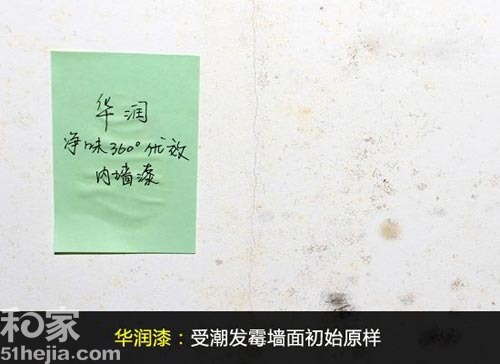 华润
净味360°优效
内墙漆
和家
51hejia.com
华润漆：受潮发霉墙面初始原样